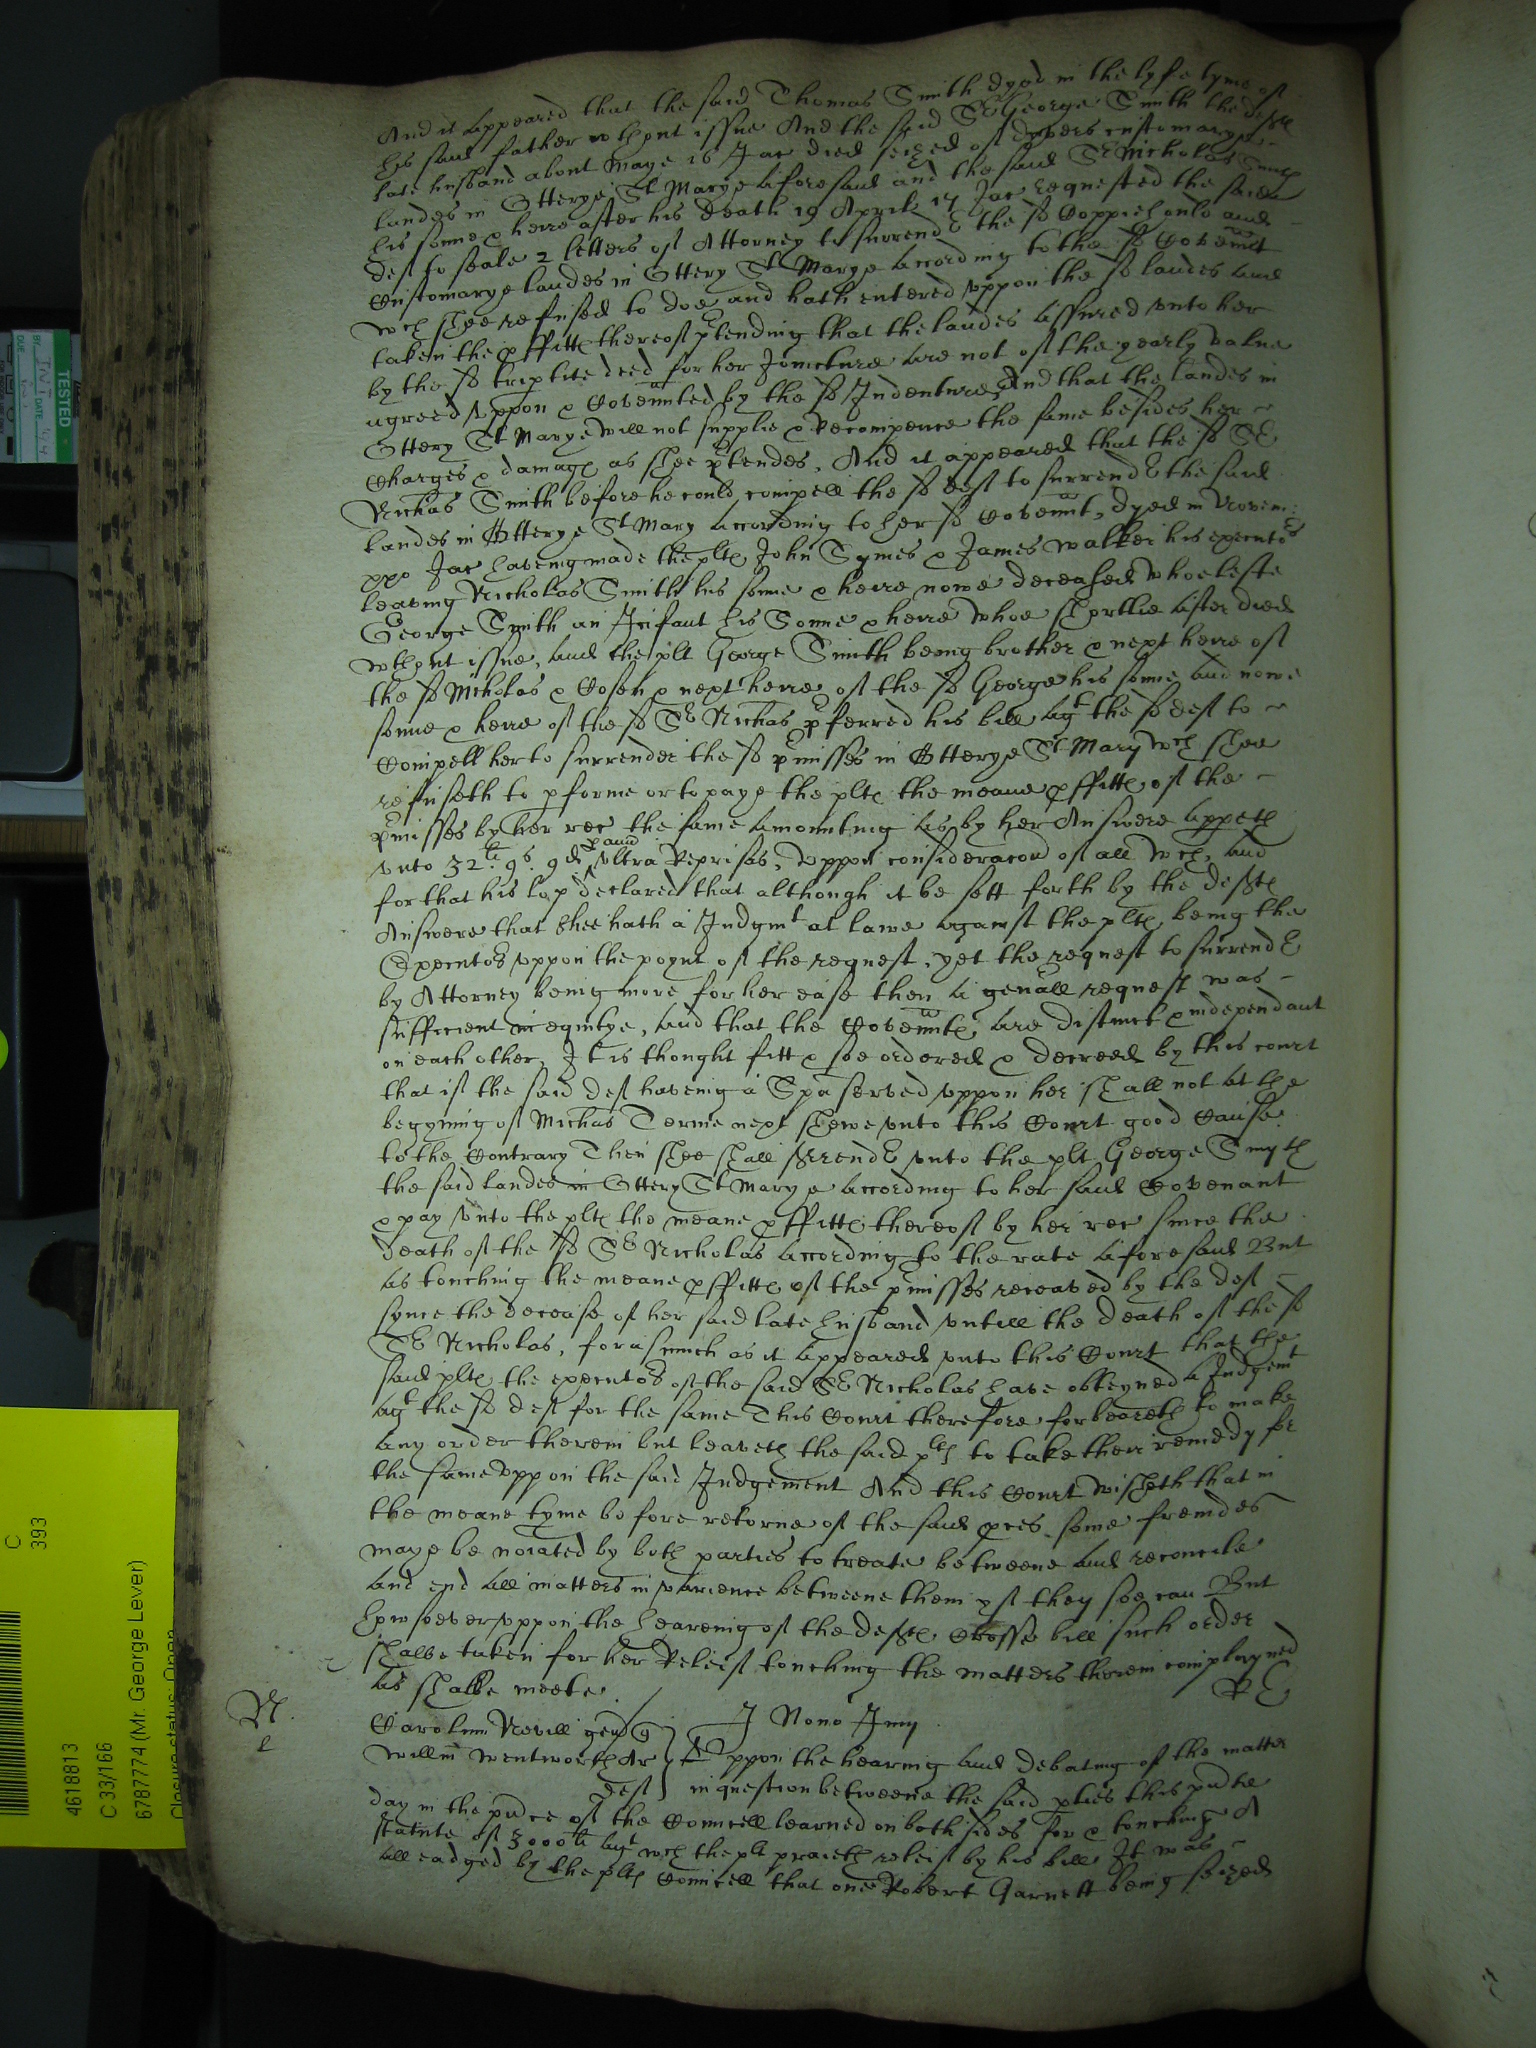 And it appeared that the said Thomas Smith dyed in the lyfe tyme of
his said father wthout issue And the said Sr George Smith the defts
late husband about Maye 16 Jac died seized of dyvers customarye
landes in Otterye St Marye aforesaid and the said Sr Nicholas Smith
his sonne & heire after his death 19 Aprill 17 Jac requested the said
deft to seale 2 letters of Attorney to surrendr the sd Coppiehould and
Customarye landes in Ottery St Marye according to the sd Covennt
wch shee refused to doe and hath entered uppon the sd landes and
taken the pffitts thereof ptending that the landes assured unto her
by the sd triptite deed for her Joincture are not of the yearly value
agreed uppon & Covennted by the sd Indenture, And that the landes in
Ottery St Marye will not supplie & recompence the same besides her
Charges & damage as shee ptendes, And it appeared that the sd Sr
Nichas Smith before he could compell the sd deft to surrendr the said
landes in Otterye St Mary according to her sd Covennt, dyed in Novem:
xxo Jac haveing made the plts John Symes & James Walker his executors
leaving Nicholas Smith his sonne & heire nowe deceased whoe lefte
George Smith an Infant his Sonne & heire whoe shortlie after died
wthout issue, and the plt George Smith being brother & next heire of
the sd Nicholas & Cosen & next heire of the sd George his sonne and nowe
sonne & heire of the sd Sr Nichas pferred his bill agt the sd deft to
Compell her to surrender the sd pmisses in Otterye St Mary wch shee
refuseth to pforme or to paye the plts the meane pffitts of the
pmisses by her rec the same amounting as by her Answere appeth
unto 32li. 9s. 9d p ann ultra Reprisas, Uppon consideracon of all wch, and
for that his lop declared that although it be sett forth by the defts
Answere that shee hath a Judgmt at lawe against the plts being the
Executors uppon the poynt of the request, yet the request to surrendr
by Attorney being more for her ease then a genall request was
sufficient in equitye, and that the Covennts are distinct & independant
on each other, It is thought fitt & soe ordered & decreed by this court
that if the said deft haveing a Spa served uppon her shall not at the
begyning of Michas Terme next shewe unto this Court good Cause
to the Contrary Then shee shall surrendr unto the plt George Smyth
the said landes in Ottery St Marye according to her said Covenant
& pay unto the plts the meane pffitts thereof by her rec since the
death of the sd Sr Nicholas according to the rate aforesaid But
as touching the meane pffitts of the pmisses receaved by the deft
synce the decease of her said late husband untill the death of the sd
Sr Nicholas, forasmuch as it appeared unto this Court that the
said plts the executors of the said Sr Nicholas have obteyned a Judgemt
agt the sd deft for the same This Court therefore forbeareth to make
any order therein but leaveth the said plts to take their remedy for
the same uppon the said Judgement And this Court wisheth that in
the meane tyme before retorne of the said pces some freindes
maye be noiated by both parties to treate betweene and reconcile
and end all matters in varience betweene them yf they soe can But
howsoever uppon the heareing of the defts Crosse bill such order
shalbe taken for her Releif touching the matters therein complayned
as shalbe meete
R E
Carolum Nevill gen q
J Nono Juny
Willm Wentworth Ar
deft
Uppon the hearing and debating of the matter
in question betweene the said pties this pnte
day in the pnce of the Councell learned on both sides for & touching A
statute of 3000li agt wch the plt praieth releif by his bill It was
alleadged by the plts Councell that one Robert Garnett being seized
C
393
4618813
C 33/166
6787774 (Mr. George Leven)
Closure status: Open
TESTED
BY
DATE